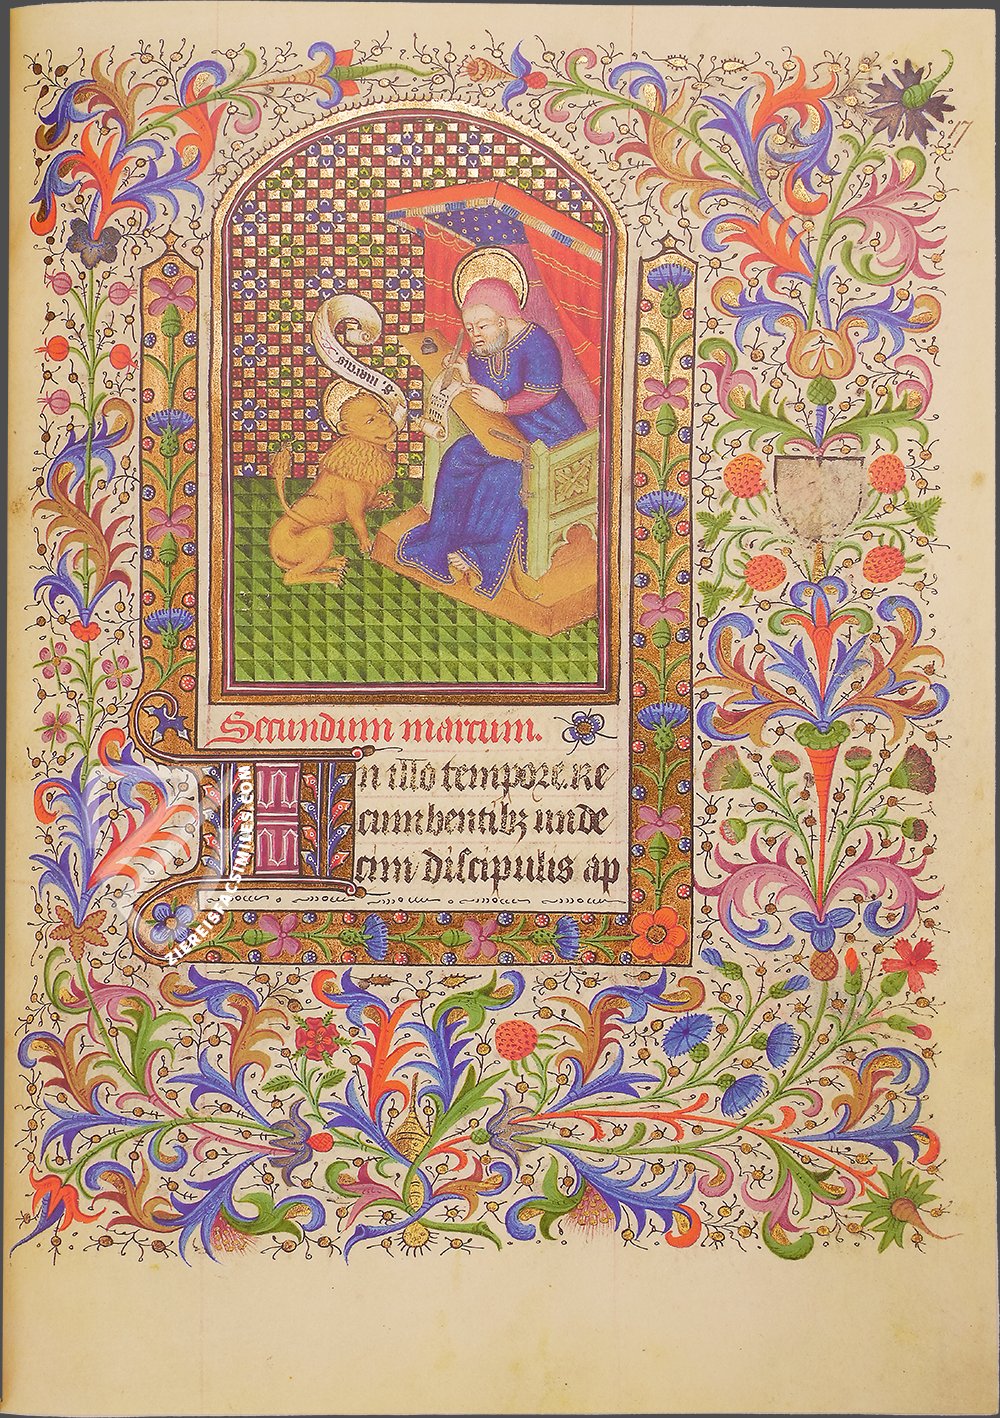 17
S. marcus
Secundum marcum.
In illo tempore. Re
cumbentibz unde
cim discipulis ap
ZIEREIS FACSIMILES.COM